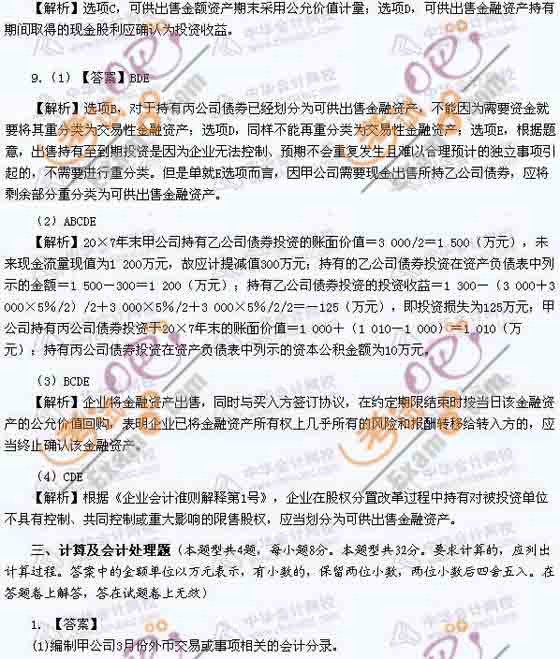 【解析】选项C，可供出售金额资产期末采用公允价值计量；选项D，可供出售金融资产持有
期间取得的现金股利应确认为投资收益。
9．（1）【答案】BDE
【解析】选项B，对于持有丙公司债券已经划分为可供出售金融资产，不能因为需要资金就
要将其重分类为交易性金融资产；选项D，同样不能再重分类为交易性金融资产；选项E，根据题
意，出售持有至到期投资是因为企业无法控制、预期不会重复发生且难以合理预计的独立事项引
起的，不需要进行重分类。但是单就E选项而言，因甲公司需要现金出售所持乙公司债券，应将
剩余部分重分类为可供出售金融资产。
（2）ABCDE
【解析】20×7年末甲公司持有乙公司债券投资的账面价值＝3 000/2＝1 500（万元），未
来现金流量现值为1 200万元，故应计提减值300万元；持有的乙公司债券投资在资产负债表中列
示的金额＝1 500－300＝1 200（万元）；持有乙公司债券投资的投资收益＝1 300－（3 000＋3
000×5%/2）/2＋3 000×5%/2＋3 000×5%/2/2＝－125（万元），即投资损失为125万元；甲
公司持有丙公司债券投资于20×7年末的账面价值＝1 000＋（1 010－1 000）＝1 010（万
元）；持有丙公司债券投资在资产负债表中列示的资本公积金额为10万元。
（3）BCDE
【解析】企业将金融资产出售，同时与买入方签订协议，在约定期限结束时按当日该金融资
产的公允价值回购，表明企业已将金融资产所有权上几乎所有的风险和报酬转移给转入方的，应
当终止确认该金融资产。
（4）CDE
【解析】根据《企业会计准则解释第1号》，企业在股权分置改革过程中持有对被投资单位
不具有控制、共同控制或重大影响的限售股权，应当划分为可供出售金融资产。
三、计算及会计处理题（本题型共4题，每小题8分。本题型共32分。要求计算的，应列出
计算过程。答案中的金额单位以万元表示，有小数的，保留两位小数，两位小数后四舍五入。在
答题卷上解答，答在试题卷上无效）
1．【答案】
(1)编制甲公司3月份外币交易或事项相关的会计分录。